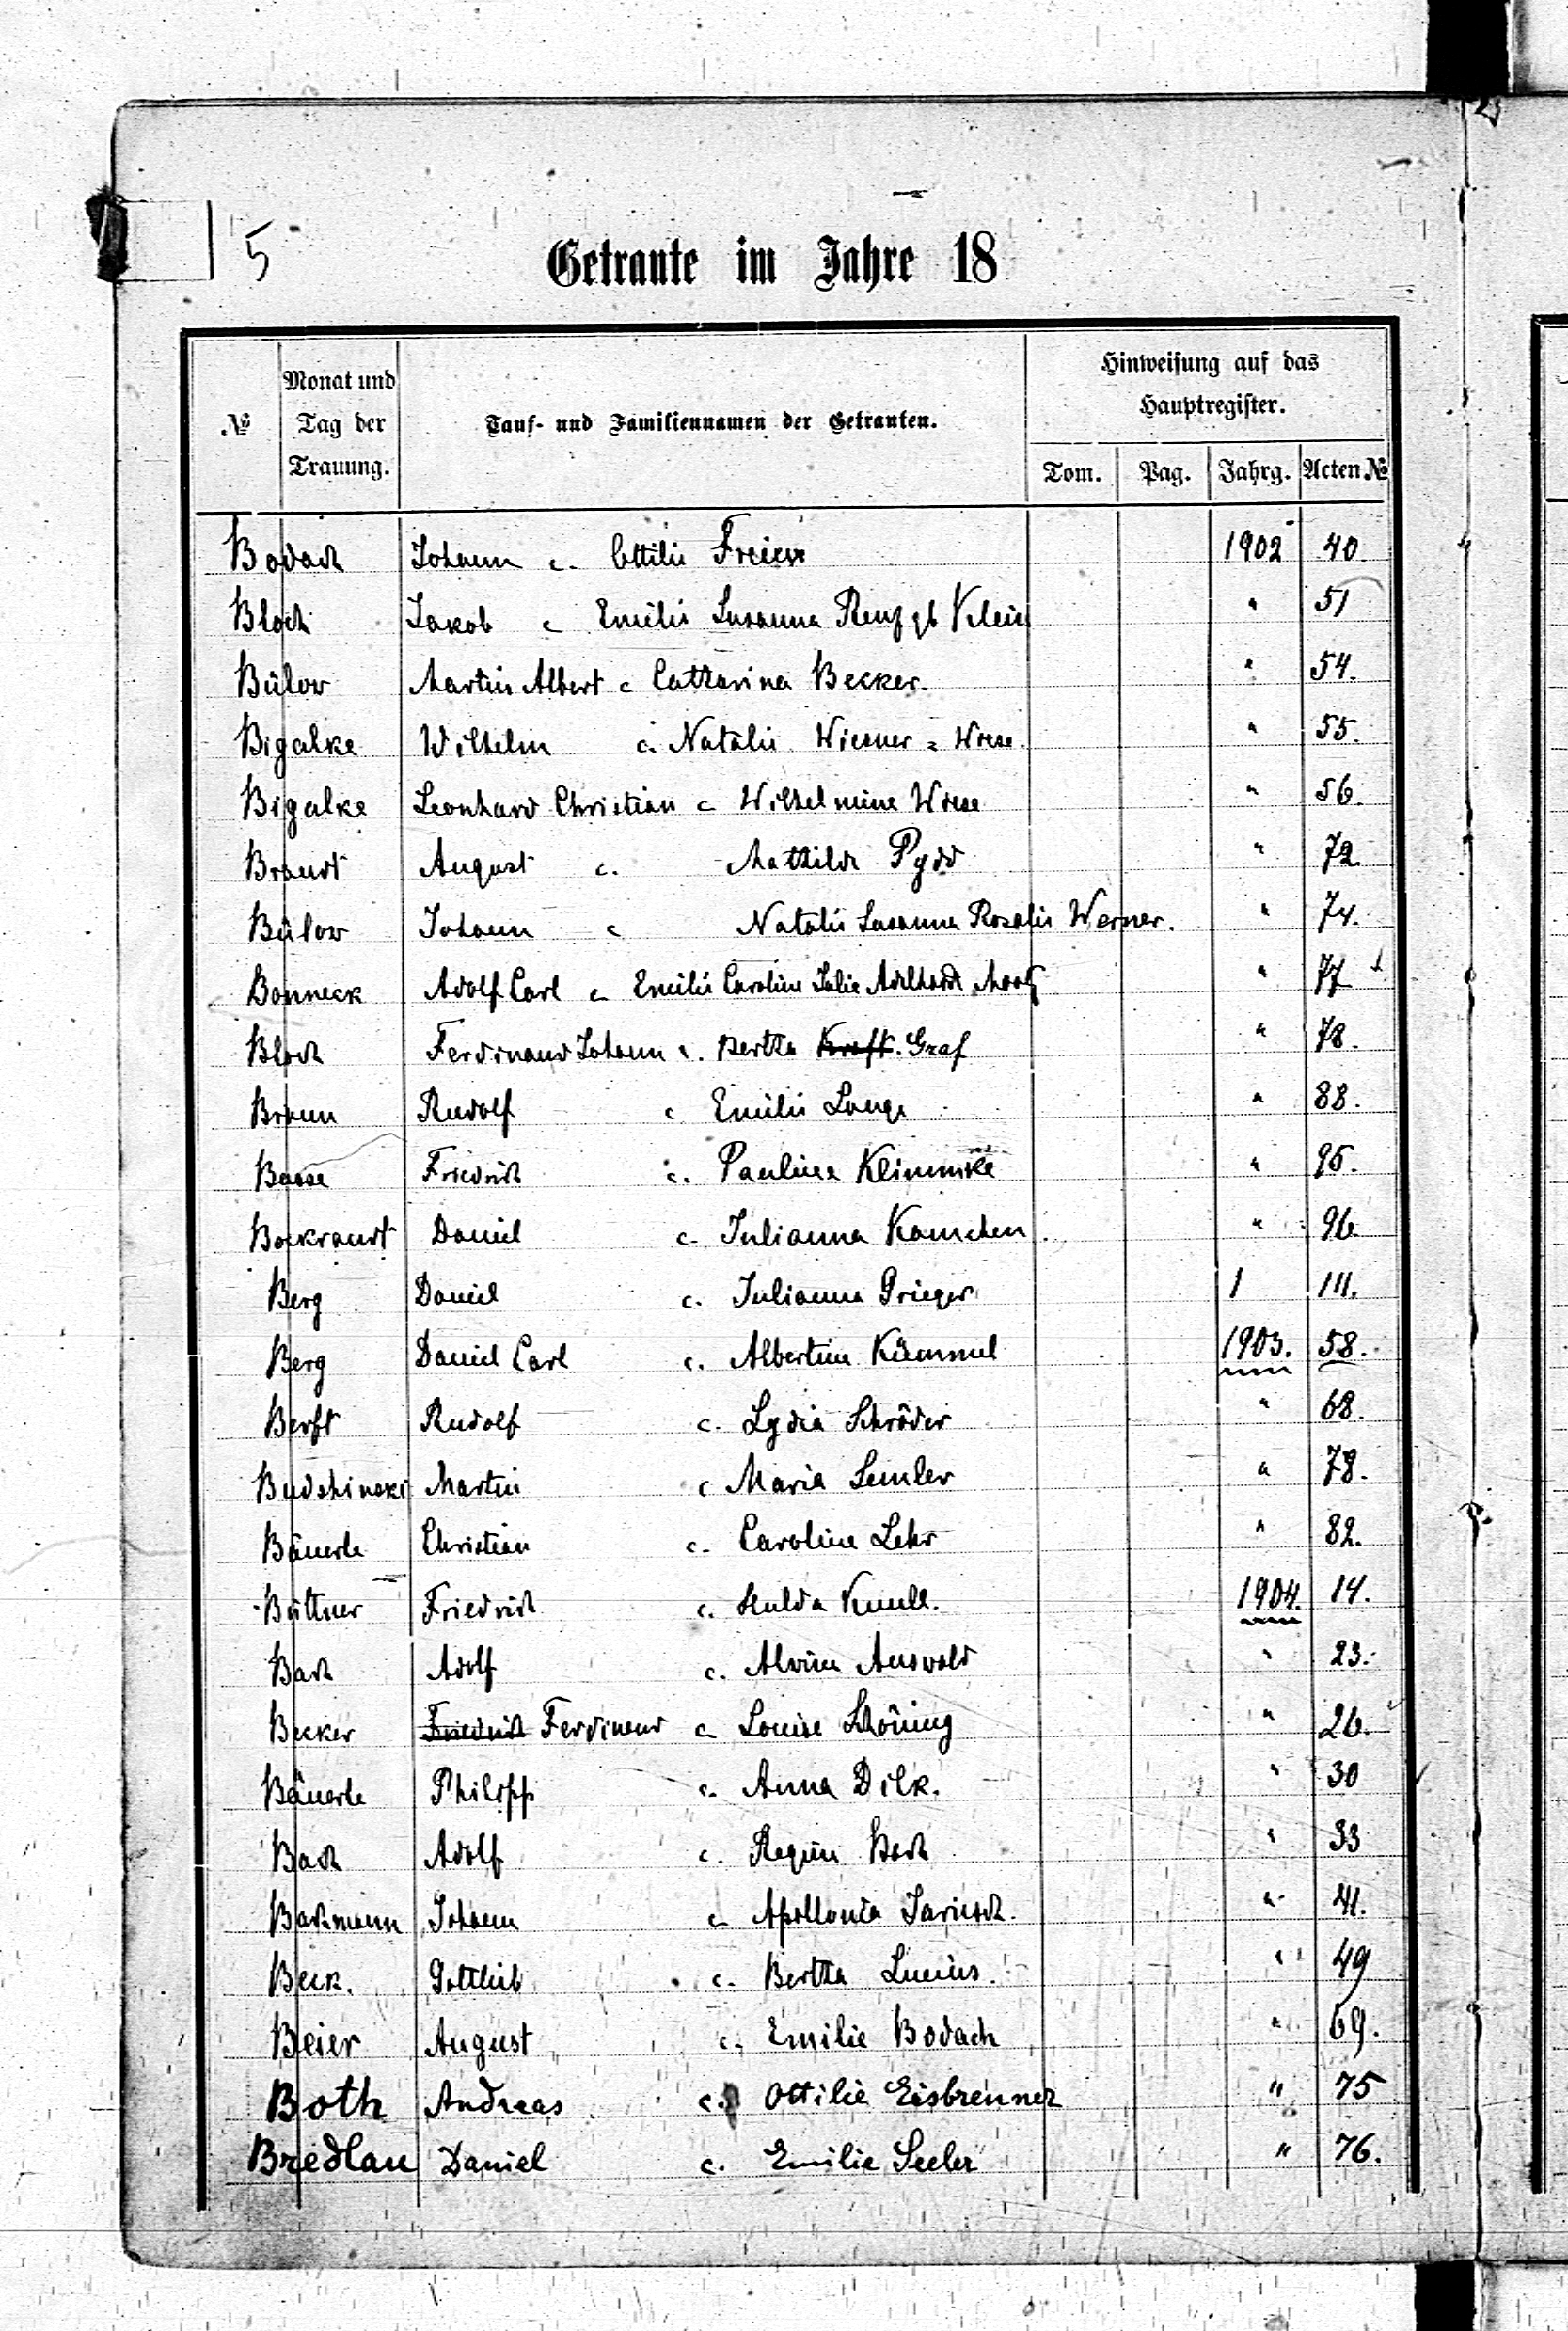 5
Getraute im Jahre 18
№ Monat und Tag der Trauung. Tauf- und Familiennamen der Getrauten. Hinweisung auf das Hauptregister.
Tom. Pag. Jahrg. Acten №
Bodach Johann c. Ottilie Freier 1902 40
Bloch Jakob c Emilie Susanna Renz gb Klein " 51
Bülow Martin Albert c Catharina Becker. " 54.
Bigalke Wilhelm c. Natalie Wiesner = Wiese. " 55.
Bigalke Leonhard Christian c Wilhelmine Wiese " 56.
Brandt August c. Mathilde Pydd " 72.
Bülow Johann c Natalie Susanna Rosalie Werner. " 74.
Bonneck Adolf Carl c Emilie Caroline Julie Adelheid " 77
Bloch Ferdinand Johann c. Bertha Kraft. Graf " 78.
Braun Rudolf c Emilie Lange " 88.
Baase Friedrich c. Pauline Klimmke " 95.
Bockrandt Daniel c. Julianna Kamchen " 96.
Berg Daniel c. Julianna Prieger 1 111.
Berg Daniel Carl c. Albertine Kümmel 1903. 58.
Berft Rudolf c. Lydia Schröder " 68.
Budshinski Martin c Maria Semler " 78.
Bäuerle Christian c. Caroline Lehr " 82.
Büttner Friedrich c. Hulda Knull. 1904. 14.
Bach Adolf c. Alvine Auswald " 23.
Becker Friedrich Ferdinand c Louise Schöning " 26.
Bäuerle Philipp c. Anna Dilk. " 30
Bach Adolf c. Regine Bach " 33
Bachmann Johann c Apollonia Jariesch. " 41.
Beck. Gottlieb c. Bertha Lucius. " 49
Beier August c. Emilie Bodach " 69.
Both Andreas c. Ottilie Eisbrenner " 75
Bredlau Daniel c. Emilie Seeler " 76.